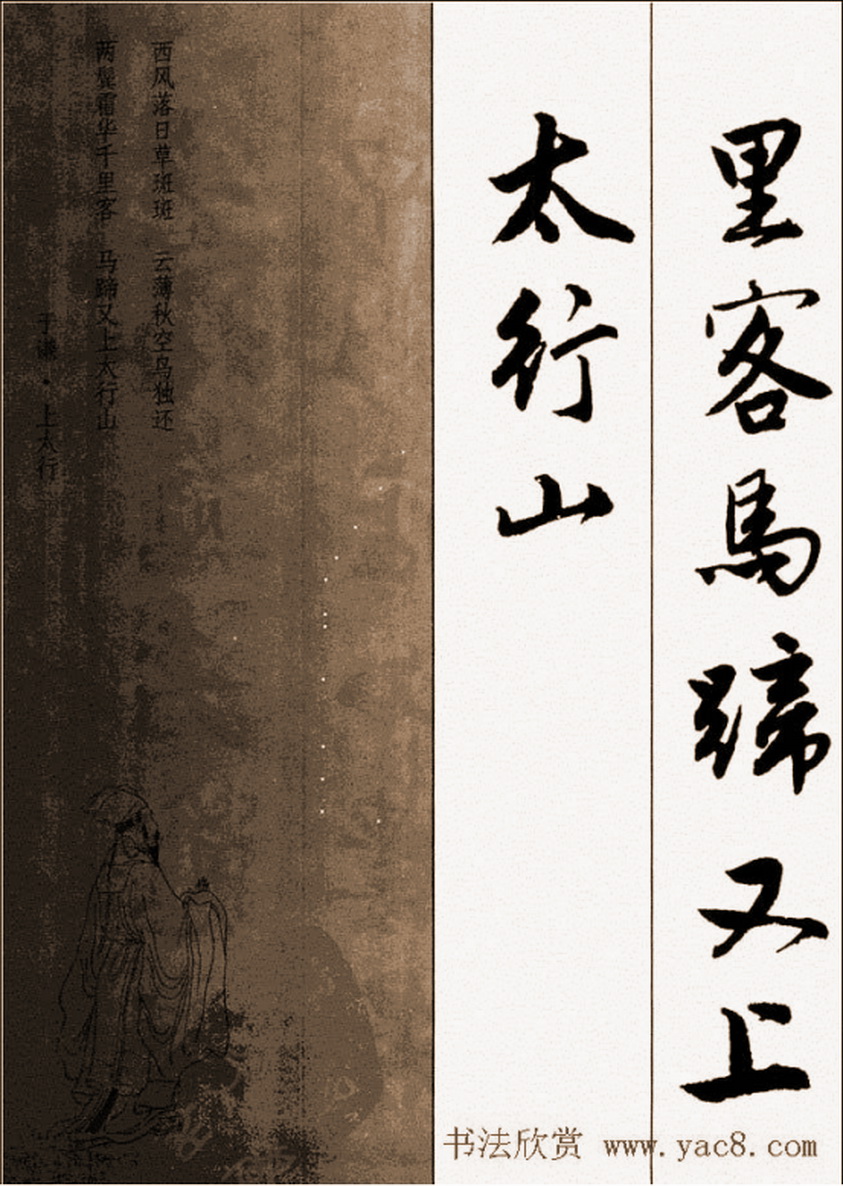 里客馬蹄又上
太行山
西风落日草斑斑 云薄秋空鸟独还
两鬓霜华千里客 马蹄又上太行山
于谦·上太行
书法欣赏 www.yac8.com